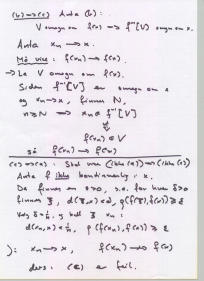 (b) ⟹ (c) Anta (b):
V omegn om f(x) ⟹ f⁻¹[V] omegn om x.
Anta xₙ ⟶ x.
Må vise: f(xₙ) ⟶ f(x).
→ La V omegn om f(x).
Siden f⁻¹[V] er omegn om x
og xₙ → x, finnes N,
n ≥ N ⟹ xₙ ∈ f⁻¹[V]
⇓
f(xₙ) ∈ V
så f(xₙ) ⟶ f(x)
(c) ⟹ (a): Skal vise (ikke (a)) ⟹ (ikke (c))
Anta f ikke kontinuerlig i x.
Da finnes en ε>0, s.a. for hver δ>0
finnes ξ, d(ξ,x)<δ, ρ(f(ξ),f(x)) ≥ ε
Velg δ = 1/n, og kall ξ xₙ:
d(xₙ,x) < 1/n, ρ(f(xₙ),f(x)) ≥ ε
): xₙ ⟶ x, f(xₙ) ⟶ f(x)
dvs: (c) er feil.